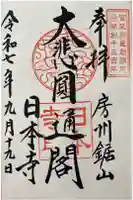 奉拝
房州鋸山
大悲圓通閣
日本寺
令和七年九月十九日